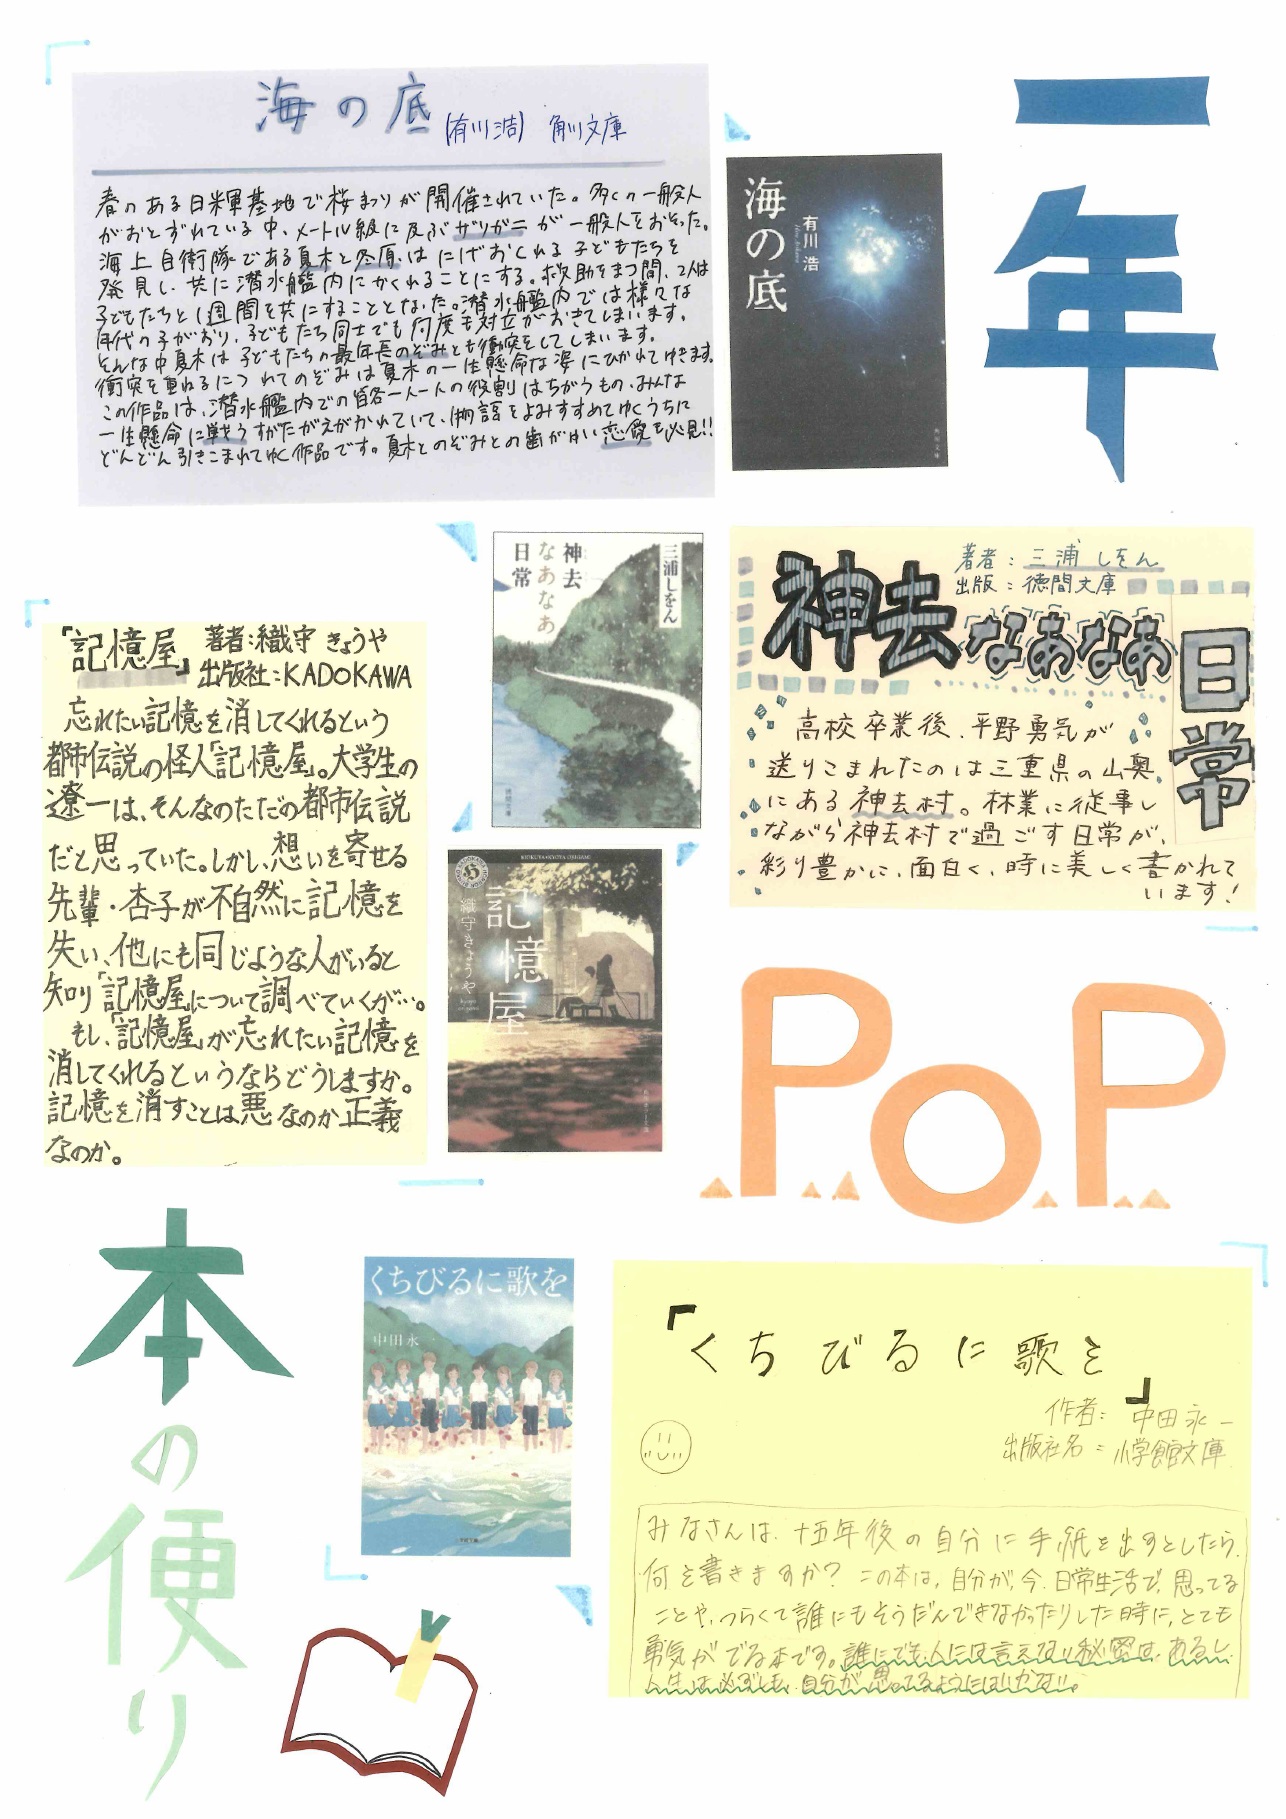 一年
海の底
(有川浩) 角川文庫
春のある日米軍基地で桜まつりが開催されていた。多くの一般人
がおとずれている中、メートル級に及ぶザリガニが一般人をおそった。
海上自衛隊である夏木と冬原はにげおくれる子どもたちを
発見し、共に潜水艦内にかくれることにする。救助をまつ間、2人は
子どもたちと1週間を共にすることとなった。潜水艦内では様々な
年代の子がおり、子どもたち同士でも何度も対立がおきてしまいます。
そんな中夏木は子どもたちの最年長のぞみとも衝突をしてしまいます。
衝突を重ねるにつれてのぞみは夏木の一生懸命な姿にひかれてゆきます。
この作品は、潜水艦内での皆各一人一人の役割はちがうもの、みんな
一生懸命に戦うすがたがえがかれていて、物語をよみすすめてゆくうちに
どんどん引きこまれてゆく作品です。夏木とのぞみとの歯がゆい恋愛も必見!!
海の底
有川浩
角川文庫
三浦しをん
神去
なあなあ
日常
徳間文庫
神去なあなあ日常
著者:三浦しをん
出版:徳間文庫
高校卒業後、平野勇気が
送りこまれたのは三重県の山奥
にある神去村。林業に従事し
ながら神去村で過ごす日常が、
彩り豊かに、面白く、時に美しく書かれて
います!
「記憶屋」
著者:織守きょうや
出版社:KADOKAWA
忘れたい記憶を消してくれるという
都市伝説の怪人「記憶屋」。大学生の
遼一は、そんなのただの都市伝説
だと思っていた。しかし、想いを寄せる
先輩・杏子が不自然に記憶を
失い、他にも同じような人がいると
知り「記憶屋」について調べていくが…。
もし、「記憶屋」が忘れたい記憶を
消してくれるというならどうしますか。
記憶を消すことは悪なのか正義
なのか。
KIOKUYA
記憶屋
織守きょうや
PoP
本の便り
くちびるに歌を
中田永一
小学館文庫
「くちびるに歌を」
作者:中田永一
出版社名:小学館文庫
みなさんは、十五年後の自分に手紙を出すとしたら、
何を書きますか? この本は、自分が、今、日常生活で、思ってる
ことや、つらくて誰にもそうだんできなかったりした時に、とても
勇気がでる本です。誰にでも、人には言えない秘密は、あるし、
人生は必ずしも、自分が思ってるようにはいかない。